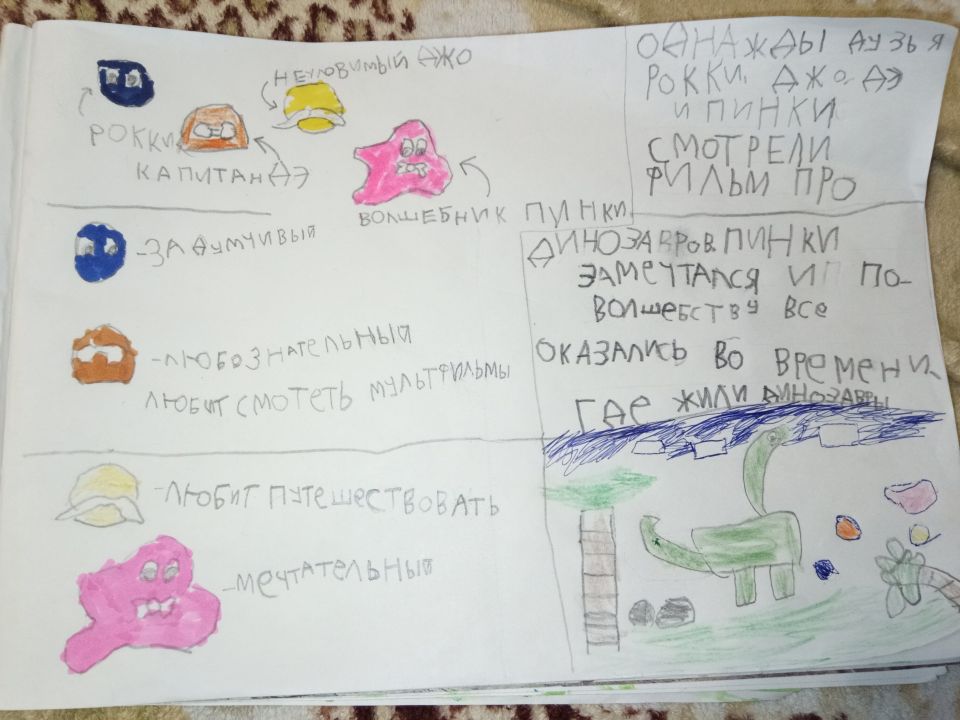 НЕУЛОВИМЫЙ ДЖО
РОККИ
КАПИТАН ДЭ
ВОЛШЕБНИК ПИНКИ
-ЗАДУМЧИВЫЙ
-ЛЮБОЗНАТЕЛЬНЫЙ
ЛЮБИТ СМОТЕТЬ МУЛЬТФИЛЬМЫ
-ЛЮБИТ ПУТЕШЕСТВОВАТЬ
-МЕЧТАТЕЛЬНЫЙ
ОДНАЖДЫ ДУЗЬЯ
РОККИ, ДЖО, ДЭ
И ПИНКИ
СМОТРЕЛИ
ФИЛЬМ ПРО
ДИНОЗАВРОВ. ПИНКИ
ЗАМЕЧТАЛСЯ И ПО-
ВОЛШЕБСТВУ ВСЕ
ОКАЗАЛИСЬ ВО ВРЕМЕНИ,
ГДЕ ЖИЛИ ДИНОЗАВРЫ